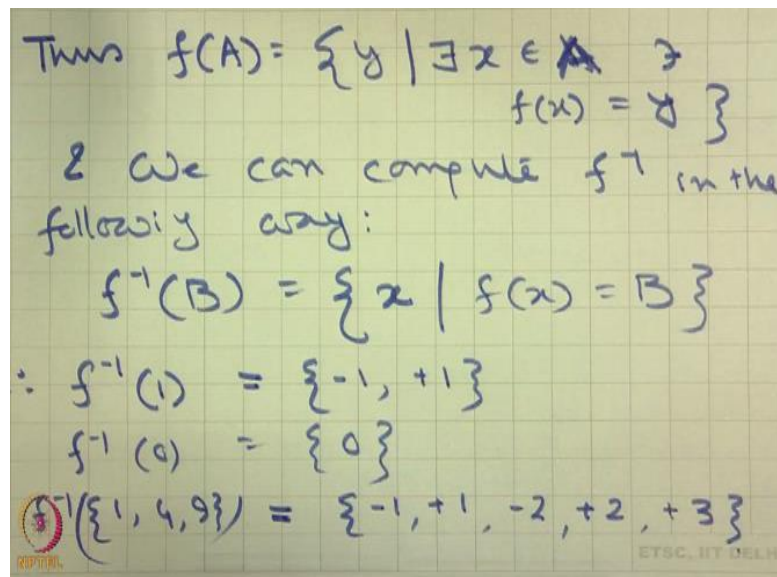 Thus f(A) = { y | ∃ x ∈ A ∋
f(x) = y }
& We can compute f⁻¹ in the
followiy way:
f⁻¹(B) = { x | f(x) = B }
∴ f⁻¹(1) = {-1, +1}
f⁻¹(0) = {0}
f⁻¹({1, 4, 9}) = {-1, +1, -2, +2, +3}
NPTEL
ETSC, IIT DELH